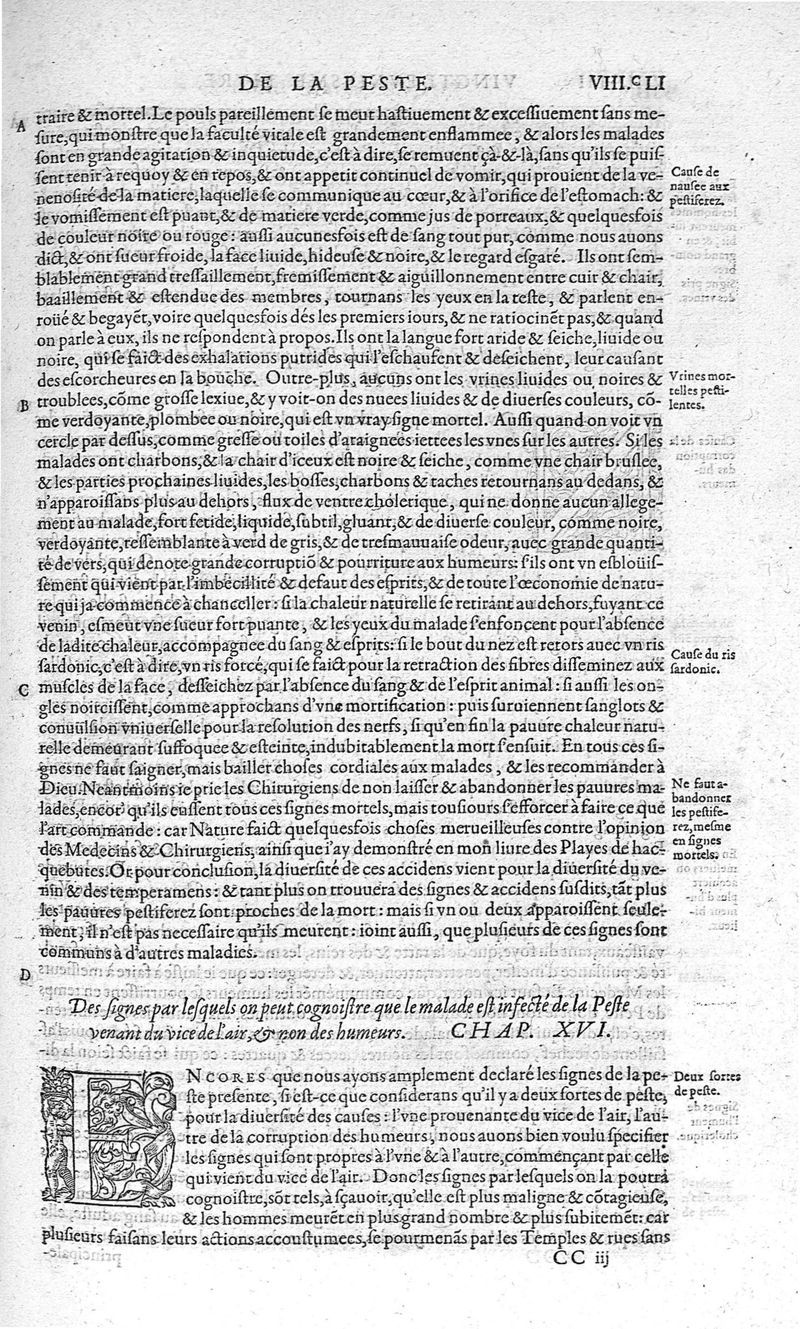 DE LA PESTE. VIII.ᶜLI
A
traire & mortel. Le pouls pareillement se meut hastiuement & excessiuement sans me-
sure, qui monstre que la faculté vitale est grandement enflammee, & alors les malades
sont en grande agitation & inquietude, c'est à dire, se remuent çà-&-là, sans qu'ils se puis-
sent tenir à requoy & en repos, & ont appetit continuel de vomir, qui prouient de la ve-
nenosité de la matiere, laquelle se communique au cœur, & à l'orifice de l'estomach: &
le vomissement est puant, & de matiere verde, comme jus de porreaux, & quelquesfois
de couleur noire ou rouge: aussi aucunesfois est de sang tout pur, comme nous auons
dict, & ont sueur froide, la face liuide, hideuse & noire, & le regard esgaré. Ils ont sem-
blablement grand tressaillement, fremissement & aiguillonnement entre cuir & chair,
baaillement & estendue des membres, tournans les yeux en la teste, & parlent en-
roüé & begayẽt, voire quelquesfois dés les premiers iours, & ne ratiocinẽt pas, & quand
on parle à eux, ils ne respondent à propos. Ils ont la langue fort aride & seiche, liuide ou
noire, qui se faict des exhalations putrides qui l'eschaufent & deseichent, leur causant
des escorcheures en la bouche. Outre-plus, aucuns ont les vrines liuides ou noires &
B
troublees, cõme grosse lexiue, & y voit-on des nuees liuides & de diuerses couleurs, cõ-
me verdoyante, plombee ou noire, qui est vn vray signe mortel. Aussi quand on voit vn
cercle par dessus, comme gresse ou toiles d'araignees iettees les vnes sur les autres. Si les
malades ont charbons, & la chair d'iceux est noire & seiche, comme vne chair bruslee,
& les parties prochaines liuides, les bosses, charbons & taches retournans au dedans, &
n'apparoissans plus au dehors, flux de ventre cholerique, qui ne donne aucun allege-
ment au malade, fort fetide, liquide, subtil, gluant, & de diuerse couleur, comme noire,
verdoyante, ressemblante à verd de gris, & de tresmauuaise odeur, auec grande quanti-
té de vers, qui denote grande corruptiõ & pourriture aux humeurs: s'ils ont vn esbloüis-
sement qui vient par l'imbecillité & defaut des esprits, & de toute l'œconomie de natu-
re qui ja commence à chanceller: si la chaleur naturelle se retirant au dehors, fuyant ce
venin, esmeut vne sueur fort puante, & les yeux du malade s'enfoncent pour l'absence
de ladite chaleur, accompagnee du sang & esprits: si le bout du nez est retors auec vn ris
sardonic, c'est à dire, vn ris forcé, qui se faict pour la retraction des fibres disseminez aux
C
muscles de la face, desseichez par l'absence du sang & de l'esprit animal: si aussi les on-
gles noircissent, comme approchans d'vne mortification: puis suruiennent sanglots &
conuulsion vniuerselle pour la resolution des nerfs, si qu'en fin la pauure chaleur natu-
relle demeurant suffoquee & esteinte, indubitablement la mort s'ensuit. En tous ces si-
gnes ne faut saigner, mais bailler choses cordiales aux malades, & les recommander à
Dieu. Neantmoins ie prie les Chirurgiens de non laisser & abandonner les pauures ma-
lades, encor' qu'ils eussent tous ces signes mortels, mais tousiours s'efforcer à faire ce que
l'art commande: car Nature faict quelquesfois choses merueilleuses contre l'opinion
des Medecins & Chirurgiens, ainsi que i'ay demonstré en mon liure des Playes de hac-
quebutes. Or pour conclusion, la diuersité de ces accidens vient pour la diuersité du ve-
nin & des temperamens: & tant plus on trouuera des signes & accidens susdits, tãt plus
les pauures pestiferez sont proches de la mort: mais si vn ou deux apparoissent seule-
ment, il n'est pas necessaire qu'ils meurent: ioint aussi, que plusieurs de ces signes sont
communs à d'autres maladies.
D
Cause de
nausee aux
pestiferez.
Vrines mor-
telles pesti-
lentes.
Cause du ris
sardonic.
Ne faut a-
bandonner
les pestife-
rez, mesme
en signes
mortels.
Des signes par lesquels on peut cognoistre que le malade est infecté de la Peste
venant du vice de l'air, & non des humeurs. CHAP. XVI.
ENCORES que nous ayons amplement declaré les signes de la pe-
ste presente, si est-ce que considerans qu'il y a deux sortes de peste,
pour la diuersité des causes: l'vne prouenante du vice de l'air, l'au-
tre de la corruption des humeurs, nous auons bien voulu specifier
les signes qui sont propres à l'vne & à l'autre, commençant par celle
qui vient du vice de l'air. Donc les signes par lesquels on la pourra
cognoistre, sõt tels, à sçauoir, qu'elle est plus maligne & cõtagieuse,
& les hommes meurẽt en plus grand nombre & plus subitemẽt: car
plusieurs faisans leurs actions accoustumees, se pourmenãs par les Temples & rues sans
Deux sortes
de peste.
CC iij